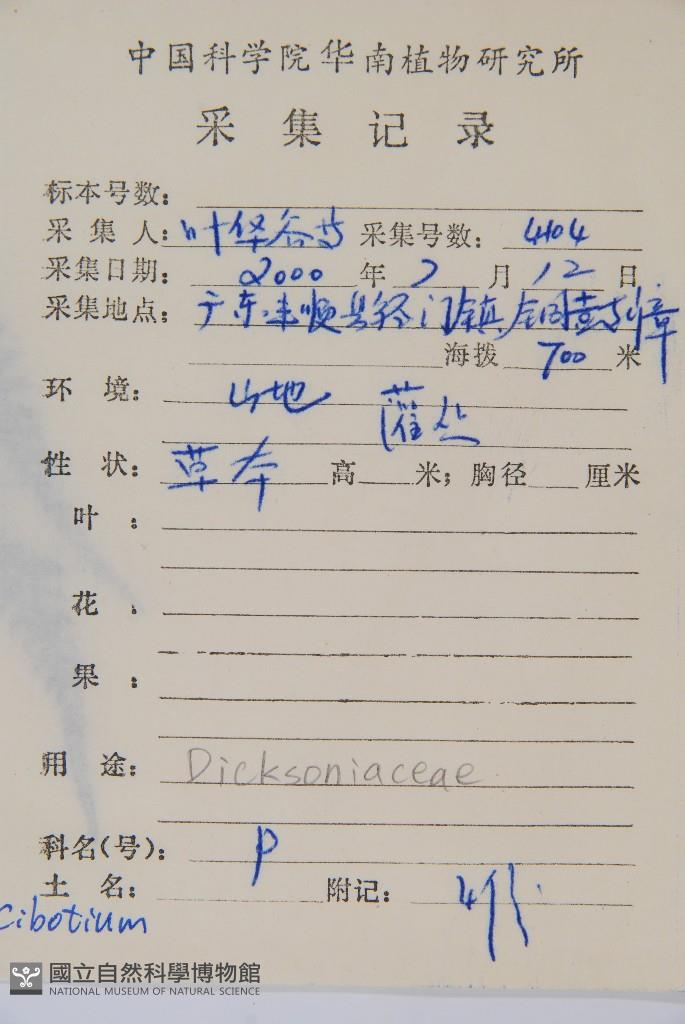 中国科学院华南植物研究所
采集记录
标本号数:
采集人: 叶华谷等 采集号数: 4404
采集日期: 2000年7月12日
采集地点: 广东丰顺县径门镇铜鼓嶂
海拨 700 米
环境: 山地 灌丛
性状: 草本 高 米; 胸径 厘米
叶:
花:
果:
用途: Dicksoniaceae
科名(号): P
土名: 附记: 4份
Cibotium
國立自然科學博物館
NATIONAL MUSEUM OF NATURAL SCIENCE